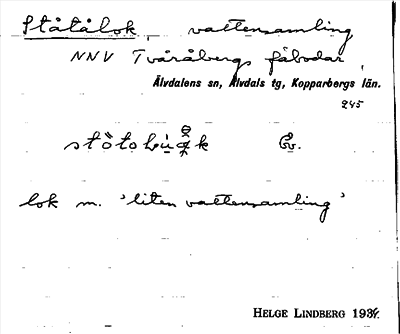 Ståtålok, vattensamling
NNV Tvåråbergs fäbodar,
Älvdalens sn, Älvdals tg, Kopparbergs län.
245
Ev.
lok m. 'liten vattensamling'
HELGE LINDBERG 1934.